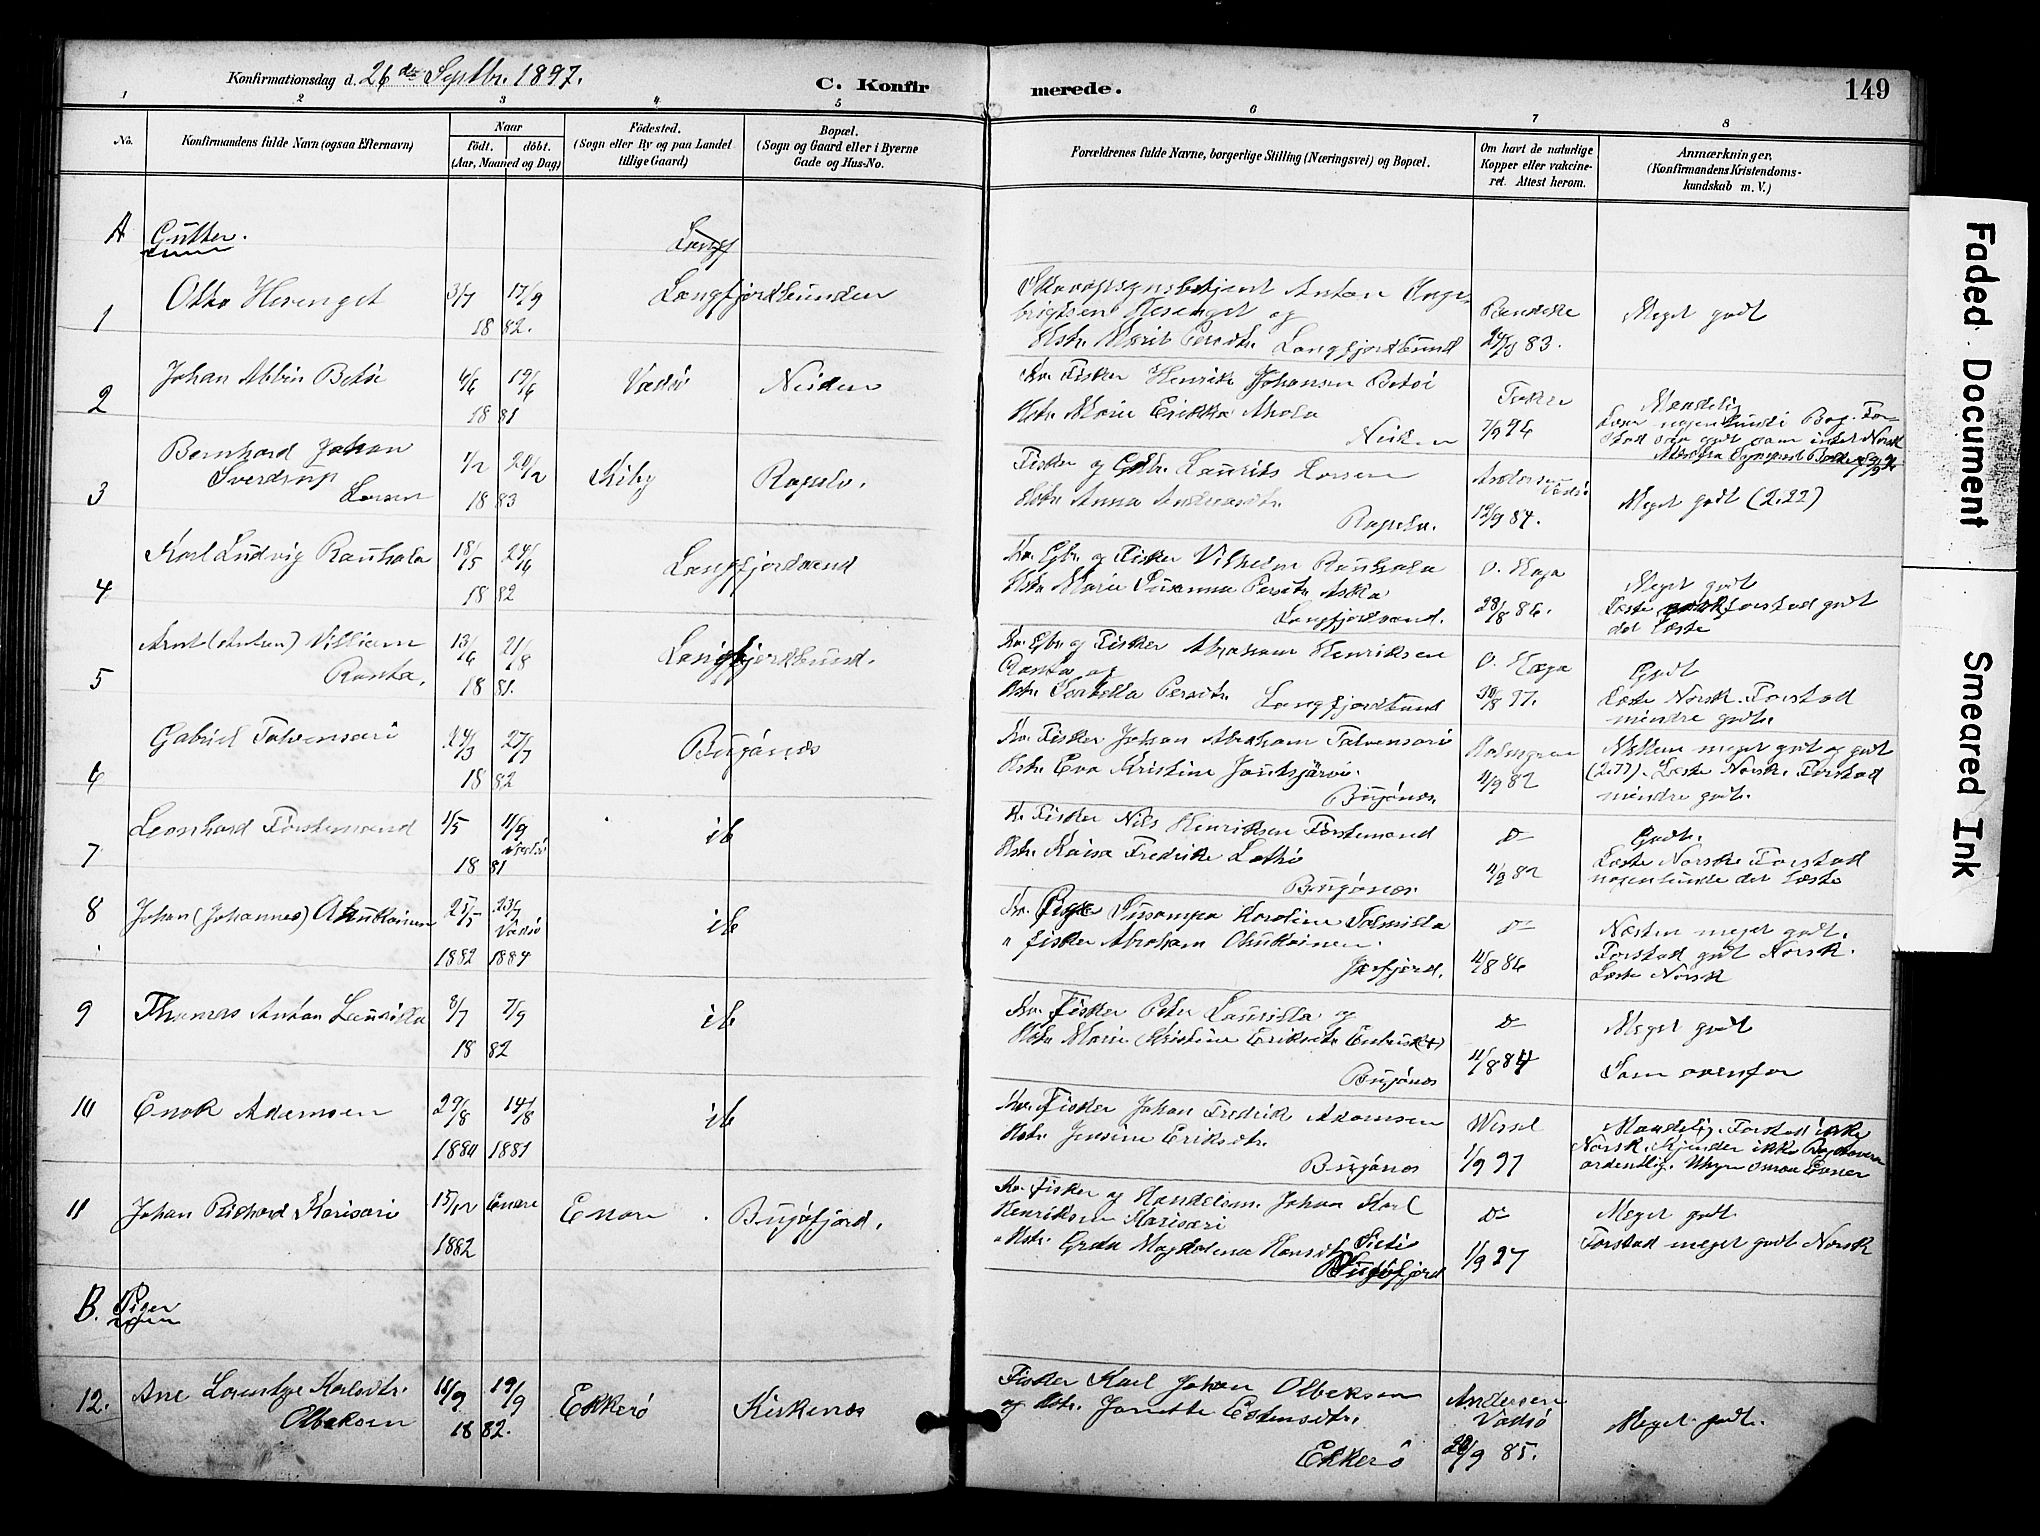 Konfirmationsdag d. 26de Septbr. 1897.
C. Konfirmerede.
149
1 2 3 4 5 6 7 8
No.
Konfirmandens fulde Navn (ogsaa Efternavn)
Naar
födt. döbt.
(Aar, Maaned og Dag)
Födested.
(Sogn eller By og paa Landet
tillige Gaard)
Bopæl.
(Sogn og Gaard eller i Byerne
Gade og Hus-No.
Forældrenes fulde Navne, borgerlige Stilling (Næringsvei) og Bopæl.
Om havt de naturlige
Kopper eller vakcine-
ret. Attest herom.
Anmærkninger.
(Konfirmandens Kristendoms-
kundskab m. V.)
A Gutter.
Langf
1
Otto Hesenget
3/7 17/9
18 82.
Langfjordbunden
Skovopsynsbetjent Anton Inge-
brigtsen Hesenget og
Hstr. Marit Persdtr. Langfjordbund
83.
Meget godt
2
Johan Albin Betsi
6/6 19/6
18 81
Vadsö
Neiden
Kv. Fisker Henrik Johansen Betsi
Hstr. Marie Erikka Ahola
Neiden
7/9 96
Maadelig
3
Bernhard Johan
Sverdrup
Larsen
1/2 20/2
18 83
Kiby
Ropelv.
Fisker og Gbr. Laurits Larsen
Hstr. Anna Andersdtr.
Ropelv.
Andersen
Vadsö
12/9 84.
Meget godt (2.22)
4
Karl Ludvig Rauhala
18/5 24/6
18 82
Langfjordsund
Kv. Gbr. og Fisker Vilhelm Rauhala
Hstr. Marie Susanna Persdtr. Aska
Langfjordsund.
O. Haga
28/8 86.
Meget godt
Læste Forstod godt
det læste
5
Arnt (Antan) Villiam
Ranta.
13/6 21/8
18 81.
Langfjordbund.
Kv. Gbr. og Fisker Abraham Henriksen
Ranta og
Hstr. Persdtr. Langfjordbund
O. Haga
30/8 97.
Godt
Læste Norsk. Forstod
mindre godt.
6
Gabriel Talvensari
24/3 27/7
18 82
Bugönæs
Kv. Fisker Johan Abraham Talvensari
Hstr. Eva Kristine Janksjärvi.
Bugönæs.
Malmgren
4/9 82
Næsten meget godt og godt
(2.77). Læste Norsk. Forstod
mindre godt.
7
Leonhard Förstemand
1/5 11/9
Vadsö
18 81
ib
K. Fisker Nils Henriksen Förstemand
Hstr. Kaisa Fredrike Lathi
Bugönæs.
do
4/9 82
Godt.
Læste Norsk. Forstod
nogenlunde det læste
8
Johan (Johannes) Ahukainen
25/5 23/7
Vadsö
1882 1884
ib
Karoline
" fisker Abraham Ohukainen.
Jarfjord.
do
11/8 86
Næsten meget godt.
Forstod godt Norsk.
Læste Norsk
9
Thomas Antan Laurilla
8/7 7/9
18 82
ib
Kv. Fisker Peter Laurilla og
Hstr. Marie Kristine Eriksdtr.
Bugönæs
do
11/8 84
Meget godt
Som ovenfor
10
Enok Adamsen
29/8 14/8
1880 1881
ib
Kv. Fisker Johan Fredrik Adamsen
Hstr. Jensine Eriksdtr.
Bugönæs
Wessel
1/9 97
Maadelig. Forstod ikke
Norsk. Kjender ikke Bogstaverne
ordentlig. Uhyre smaa Evner
11
Johan Richard Karisari
15/12 Enare
1882
Enare.
Bugöfjord.
Kv. fisker og Handelsm. Johan Karl
Henriksen Karisari
" Hstr. Greta Magdalena Hansdtr.
Bugöfjord
do
1/9 97
Meget godt.
Forstod meget godt Norsk
B. Piger
12.
Ane Lorentze Karlsdtr.
Olbeksen
16/9 19/9
18 82.
Ekkerö
Kirkenæs
Fisker Karl Johan Olbeksen
og Hstr. Janette Estensdtr.
Ekkerö
Andersen
Vadsö
20/9 85.
Meget godt.
Faded Document
Smeared Ink